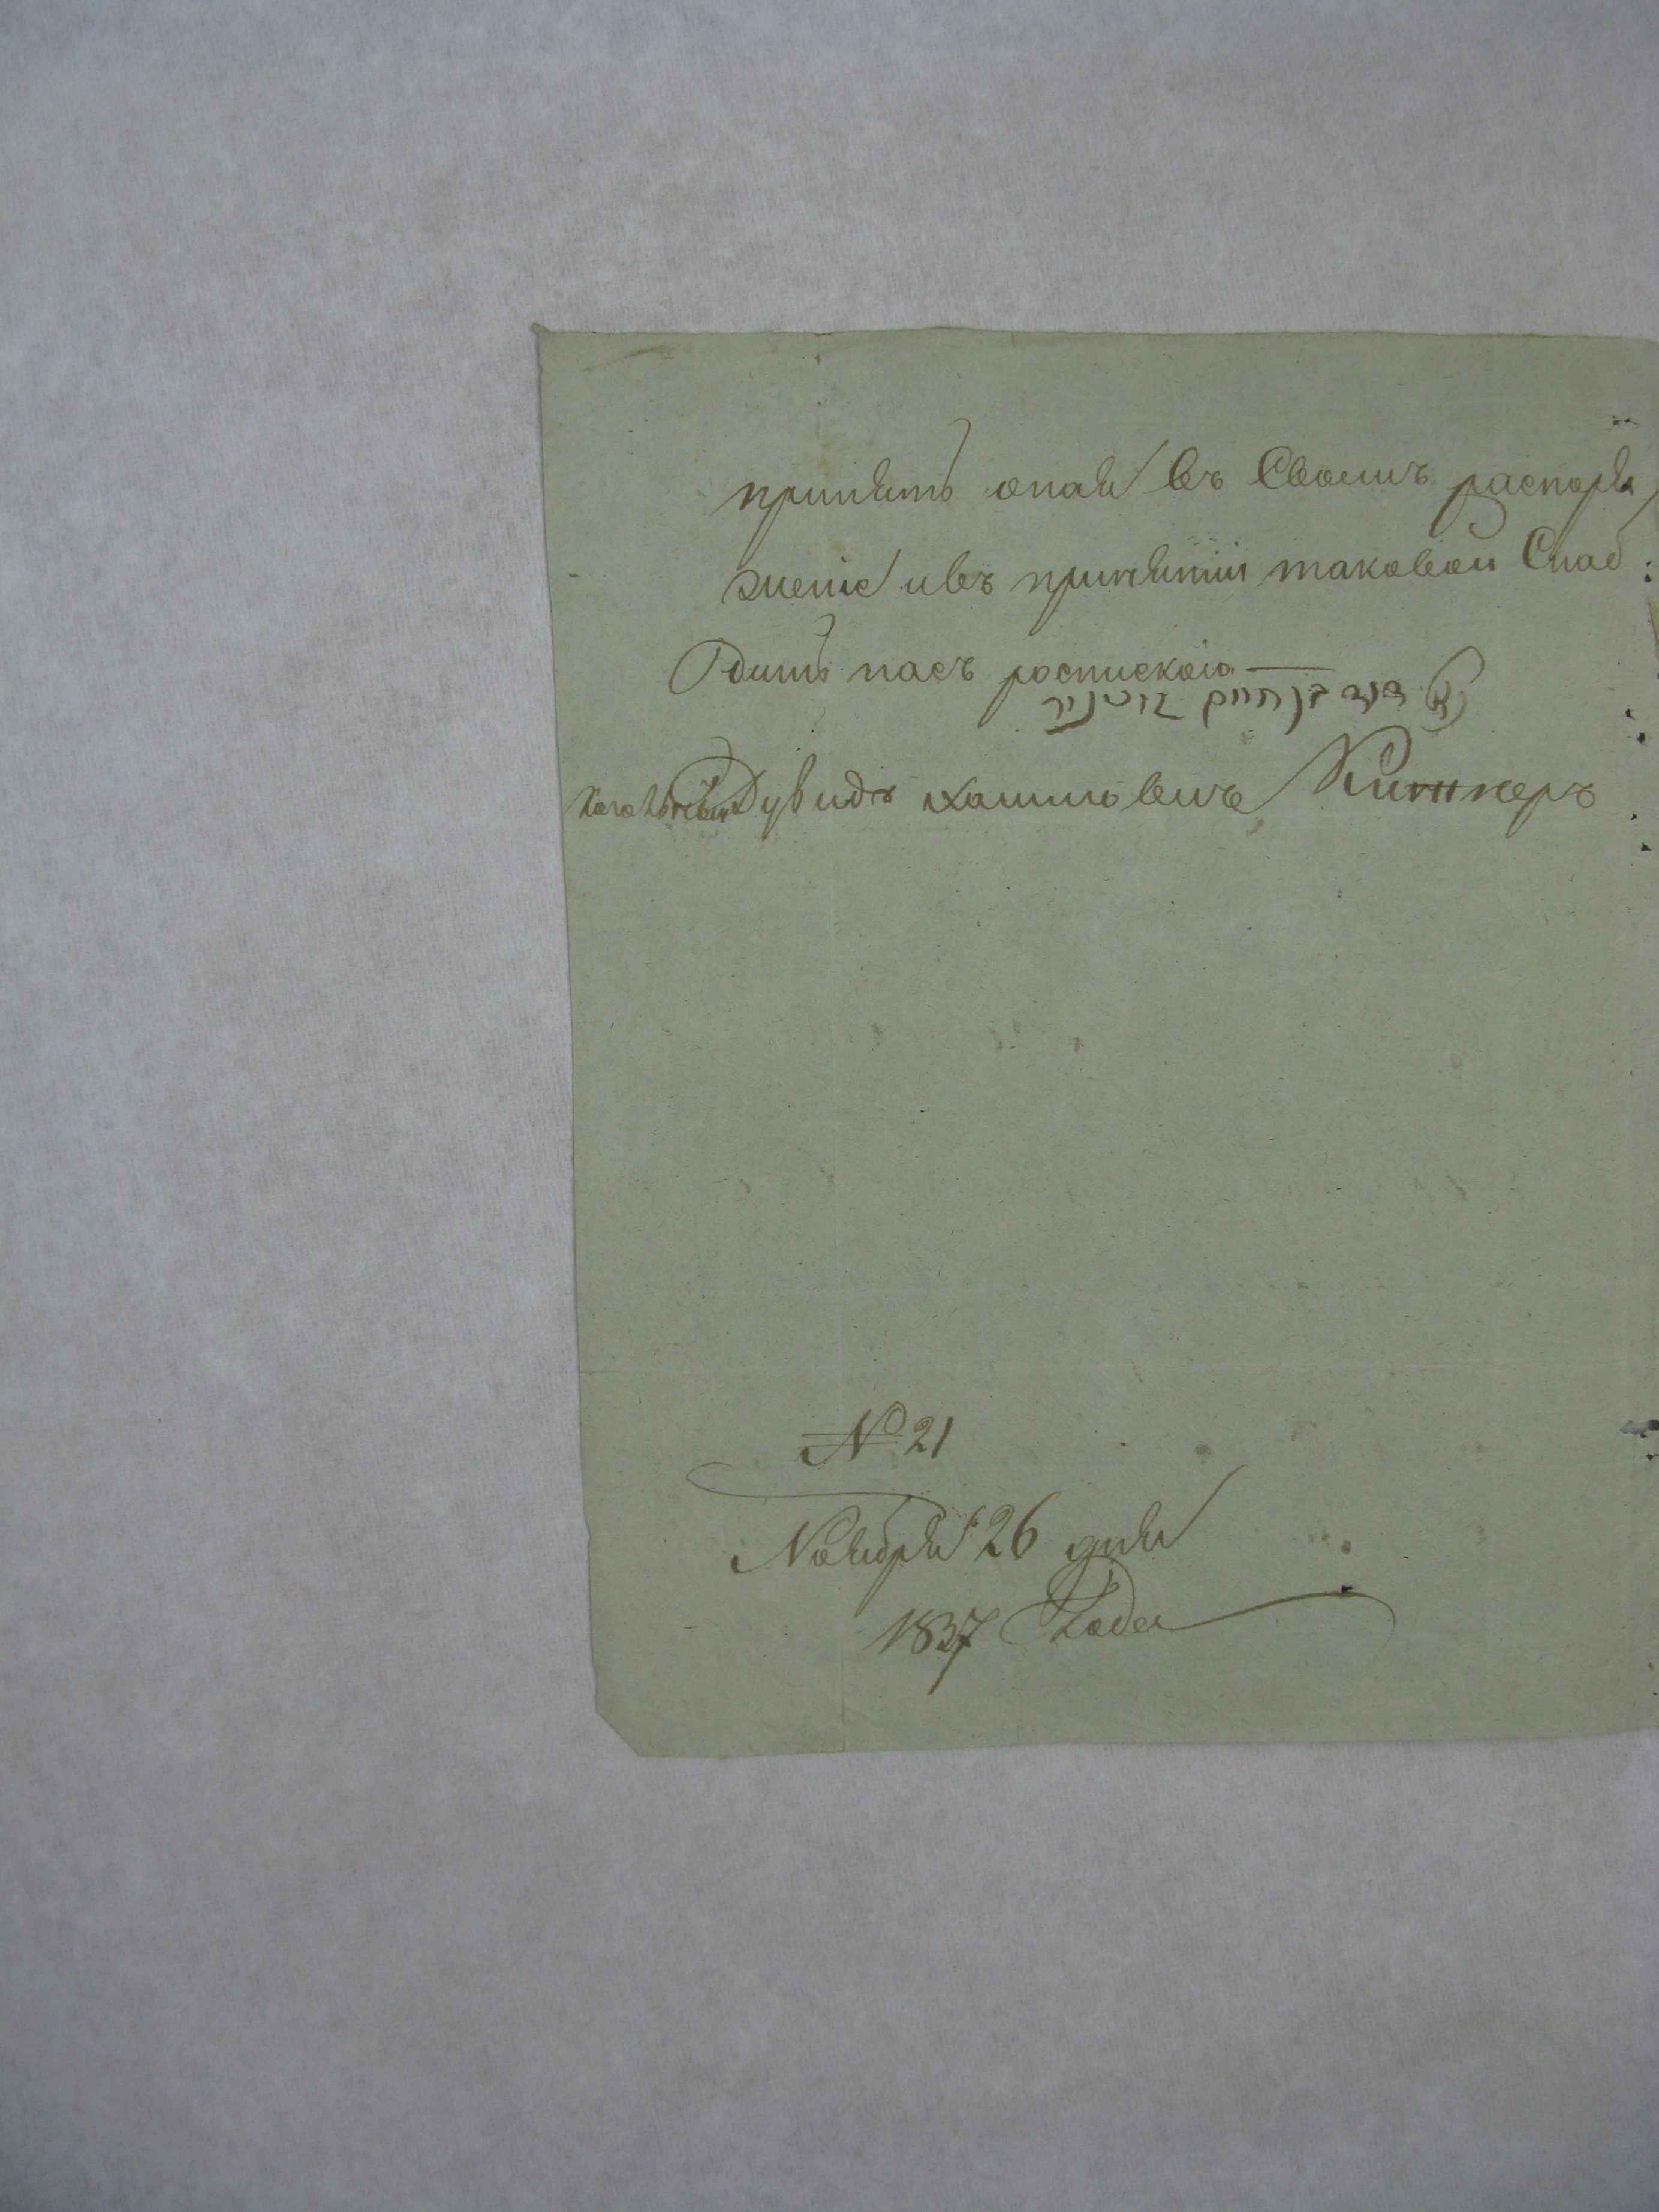 принять оная въ Своемъ распоря
жение ивъ принятии таковой Снаб
дить насъ роспискою
דוד בן חיים
Дувидъ хаимовичъ
№ 21
Ноября 26 дня
1837 Года